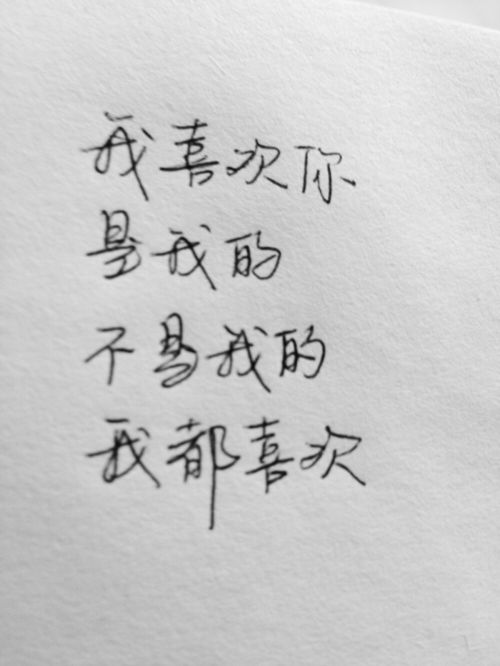 我喜欢你
是我的
不是我的
我都喜欢